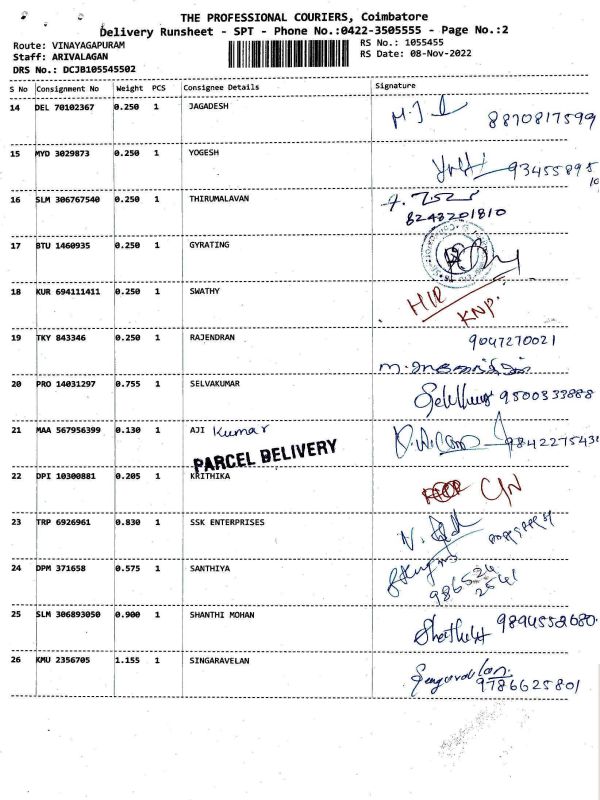 THE PROFESSIONAL COURIERS, Coimbatore
Delivery Runsheet - SPT - Phone No.:0422-3505555 - Page No.:2
Route: VINAYAGAPURAM
Staff: ARIVALAGAN
DRS No.: DCJB105545502
RS No.: 1055455
RS Date: 08-Nov-2022
S No Consignment No Weight PCS Consignee Details Signature
14 DEL 70102367 0.250 1 JAGADESH M.J 8870817599
15 MYD 3029873 0.250 1 YOGESH 93455895
10
16 SLM 306767540 0.250 1 THIRUMALAVAN
8243201810
17 BTU 1460935 0.250 1 GYRATING
18 KUR 694111411 0.250 1 SWATHY H/R
KNP.
19 TKY 843346 0.250 1 RAJENDRAN 9047270021
20 PRO 14031297 0.755 1 SELVAKUMAR 9500333888
21 MAA 567956399 0.130 1 AJI Kumar 984227543
PARCEL DELIVERY
22 DPI 10300881 0.205 1 KRITHIKA C/N
23 TRP 6926961 0.830 1 SSK ENTERPRISES
24 DPM 371658 0.575 1 SANTHIYA
986524
2541
25 SLM 306893050 0.900 1 SHANTHI MOHAN 9894552680
26 KMU 2356705 1.155 1 SINGARAVELAN Singaravelan
9786625801